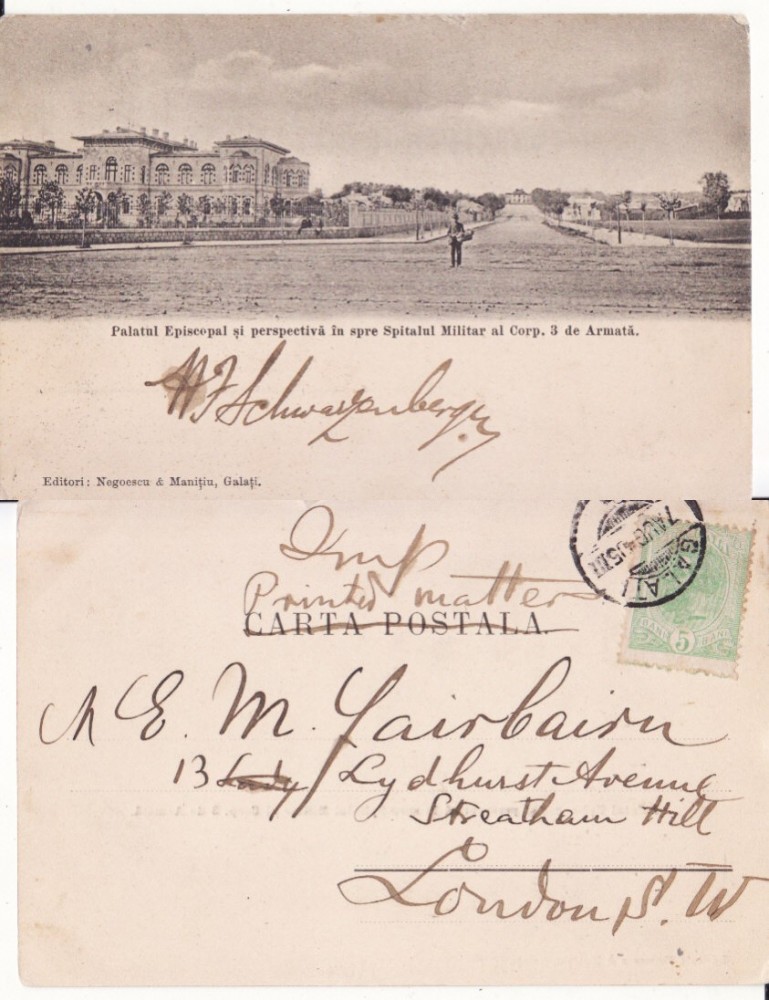 Palatul Episcopal și perspectivă în spre Spitalul Militar al Corp. 3 de Armată.
Schwarzenberger
Editori: Negoescu & Manițiu, Galați.
Imp
Printed matter
CARTA POSTALA.
GALATI
7 AUG 05
5
BANI BANI
E. M. Fairbairn
13 Lydhurst Avenue
Streatham Hill
London S. W